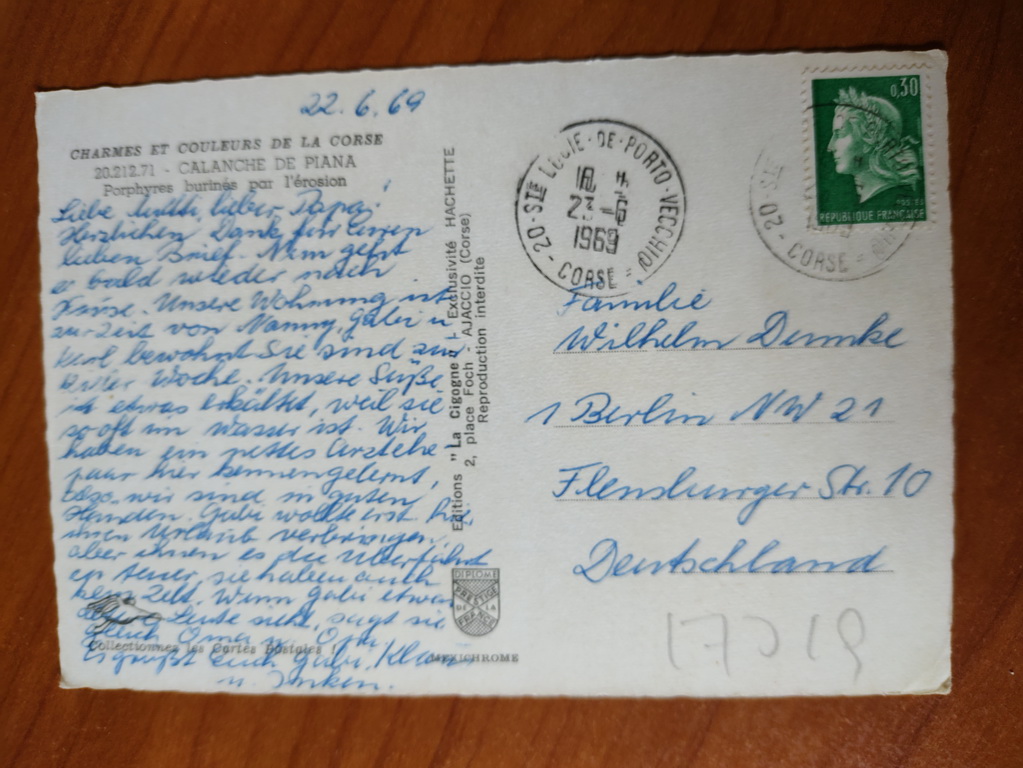 22.6.69
CHARMES ET COULEURS DE LA CORSE
20.212.71 - CALANCHE DE PIANA
Porphyres burinés par l'érosion
Liebe Mutti, lieber Papa!
Herzlichen Dank für Euren
lieben Brief. Nun geht
es bald wieder nach
Hause. Unsere Wohnung ist
zur Zeit von Nanny, Gabi u
Karl bewohnt. Sie sind
Woche. Unsere Süße
ist etwas erkältet, weil sie
so oft im Wasser ist. Wir
haben ein nettes Arztehe-
paar hier kennengelernt,
also wir sind in guten
Händen. Gabi wollte erst
ihren Urlaub verbringen,
aber ihnen es die Überfahrt
teuer, sie haben auch
kein Zelt. Wenn Gabi etwas
Leute sieht, sagt sie
gleich Oma u. Opa.
Es grüßt Euch Gabi, Klaus
u.
Collectionnez les Cartes Postales !
Editions "La Cigogne" - Exclusivité HACHETTE
2, place Foch - AJACCIO (Corse)
Reproduction interdite
DIPLOME
PRESTIGE
DE LA
FRANCE
MEXICHROME
20 - STE LUCIE-DE-PORTO-VECCHIO
18 H
23 - 6
1969
CORSE
0,30
REPUBLIQUE FRANÇAISE
20 - STE
CORSE
Familie
Wilhelm Dumke
1 Berlin NW 21
Flensburger Str. 10
Deutschland